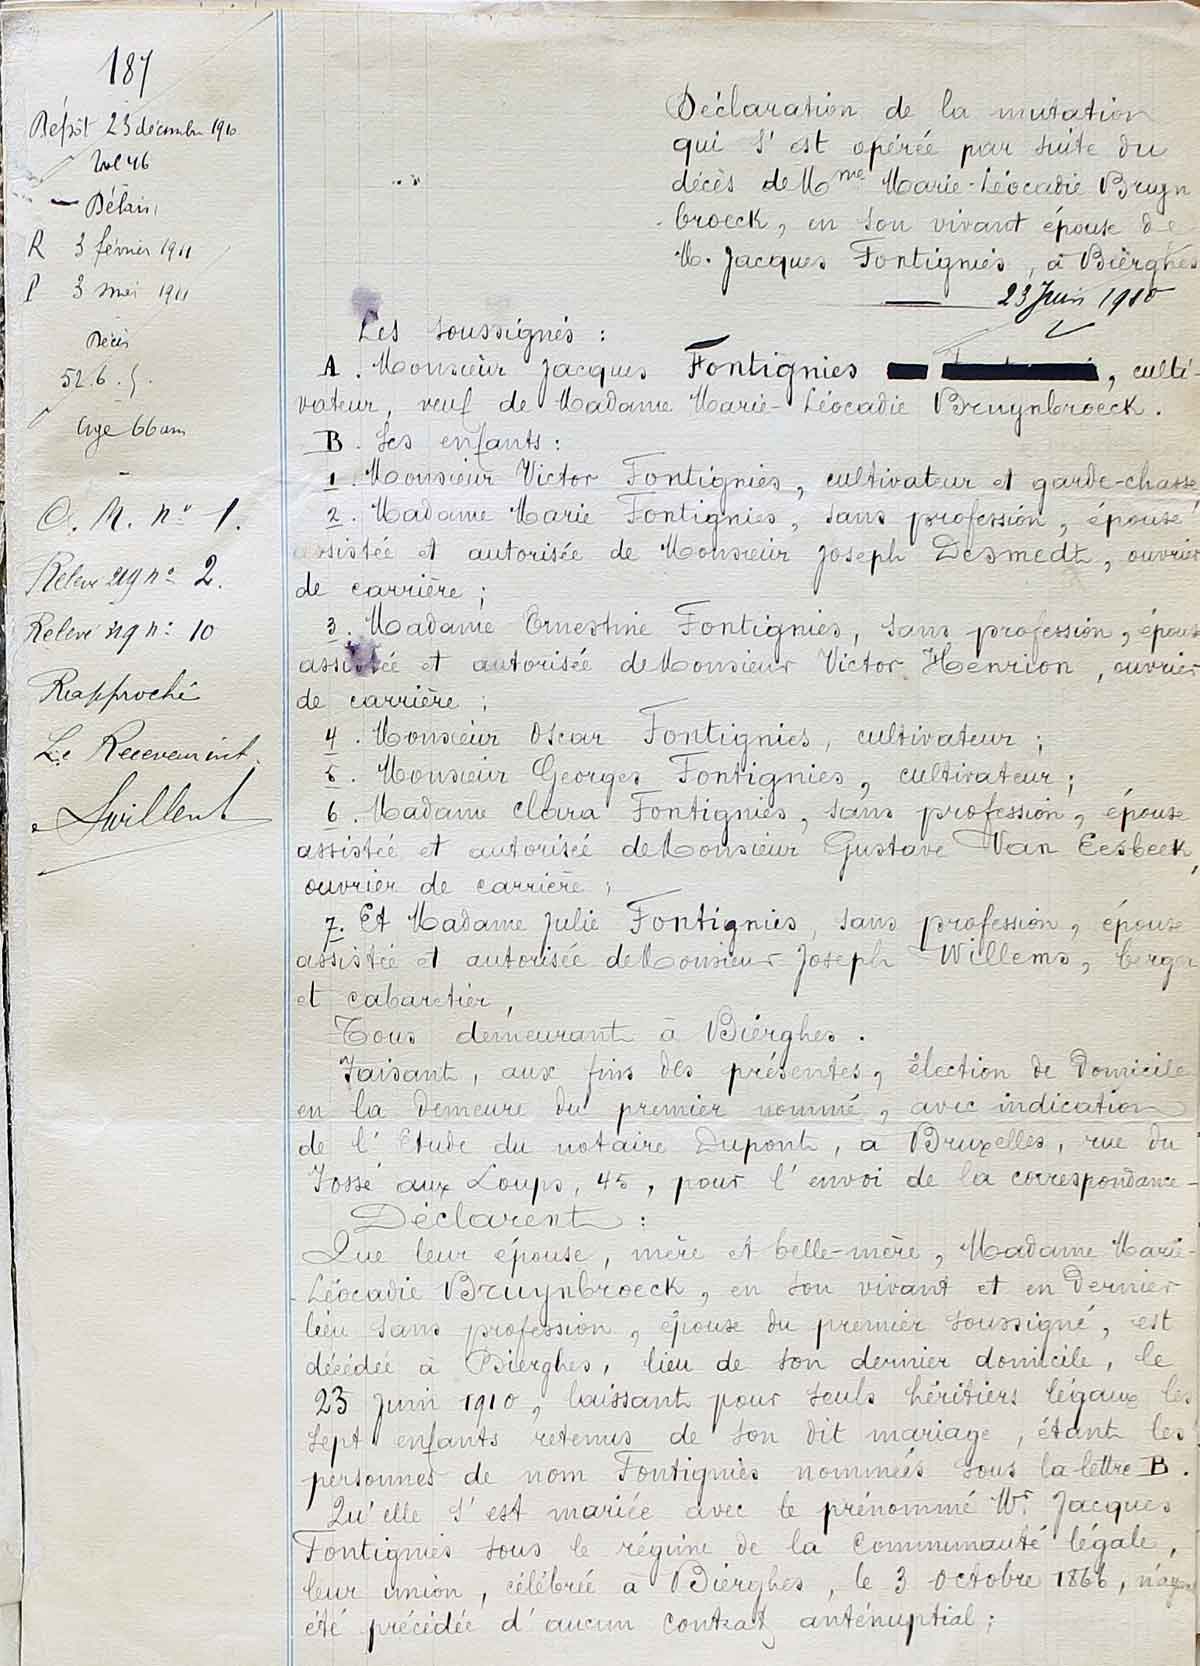 187
Dépôt 23 décembre 1910
Vol 46
Délais
R 3 février 1911
P 3 mai 1911
Décès
52.6.5.
Age 66 ans
C. M. n° 1.
Relevé 219 n° 2.
Relevé n° 10
Rapproché
Le Receveur int.
Déclaration de la mutation
qui s'est opérée par suite du
décès de Mme Marie-Léocadie Bruyn
broeck, en son vivant épouse de
M. Jacques Fontigniès, à Biérghes
23 Juin 1910
Les soussignés :
A. Monsieur Jacques Fontignies , culti-
vateur, veuf de Madame Marie-Léocadie Bruynbroeck.
B. Ses enfants :
1. Monsieur Victor Fontigniès, cultivateur et garde-chasse
2. Madame Marie Fontigniès, sans profession, épouse
assistée et autorisée de Monsieur Joseph Desmedt, ouvrier
de carrière ;
3. Madame Ernestine Fontigniès, sans profession, épouse
assistée et autorisée de Monsieur Victor Henrion, ouvrier
de carrière ;
4. Monsieur Oscar Fontigniès, cultivateur ;
5. Monsieur Georges Fontigniès, cultivateur ;
6. Madame Clara Fontigniès, sans profession, épouse
assistée et autorisée de Monsieur Gustave Van Eesbeek,
ouvrier de carrière ;
7. Et Madame Julie Fontigniès, sans profession, épouse
assistée et autorisée de Monsieur Joseph Willems, berger
et cabaretier,
Tous demeurant à Biérghes.
Faisant, aux fins des présentes, élection de Domicile
en la demeure du premier nommé, avec indication
de l'Etude du notaire Dupont, à Bruxelles, rue du
Fossé aux Loups, 45, pour l'envoi de la correspondance -
Déclarent :
Que leur épouse, mère et belle-mère, Madame Marie-
Léocadie Bruynbroeck, en son vivant et en dernier
lieu sans profession, épouse du premier soussigné, est
décédée à Bierghes, lieu de son dernier domicile, le
23 Juin 1910, laissant pour seuls héritiers légaux les
sept enfants retenus de son dit mariage, étant les
personnes de nom Fontigniès nommées sous la lettre B.
Qu'elle s'est mariée avec le prénommé Mr. Jacques
Fontigniès sous le régime de la Communauté légale,
leur union, célébrée à Biérghes, le 3 octobre 1866, n'ayant
été précédée d'aucun contrat anténuptial ;